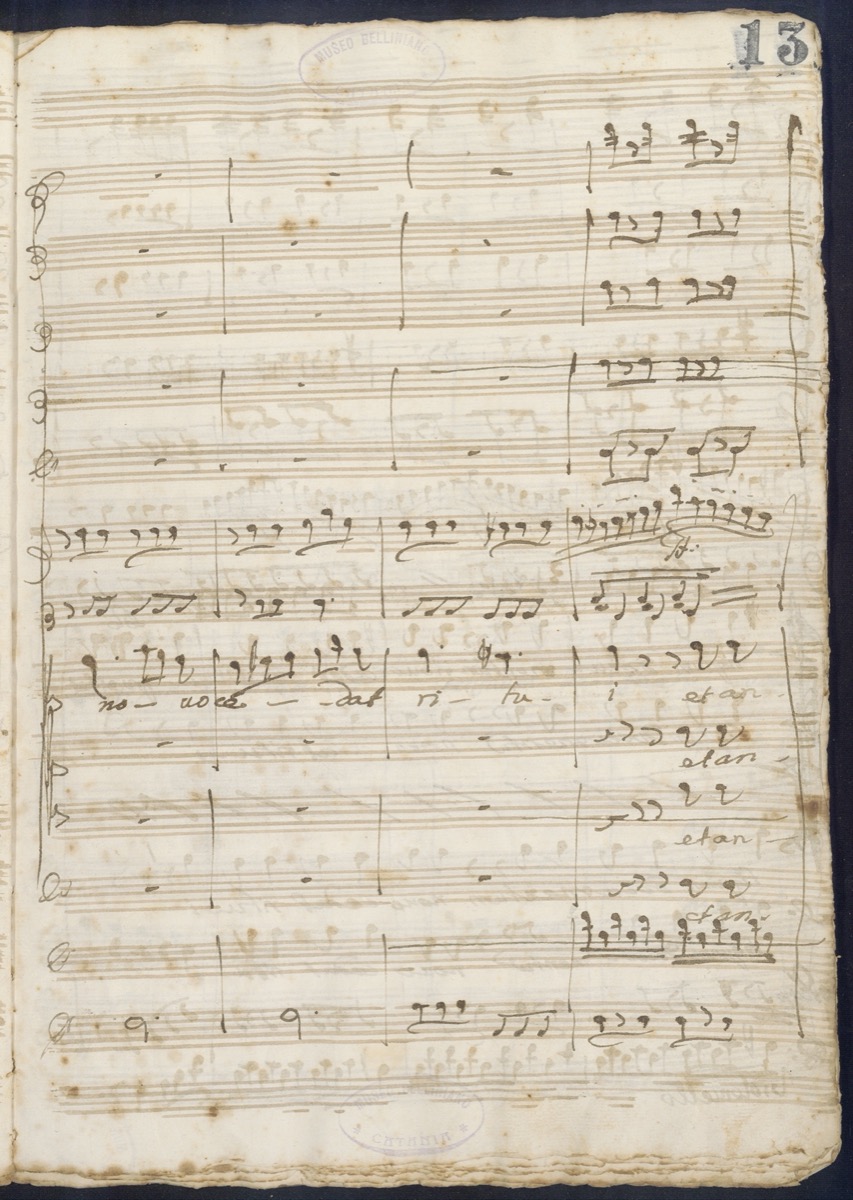 13
MUSEO BELLINIANO
no - vo ce - - dat ri - tu - i et an -
et an -
et an -
et an -
CATANIA